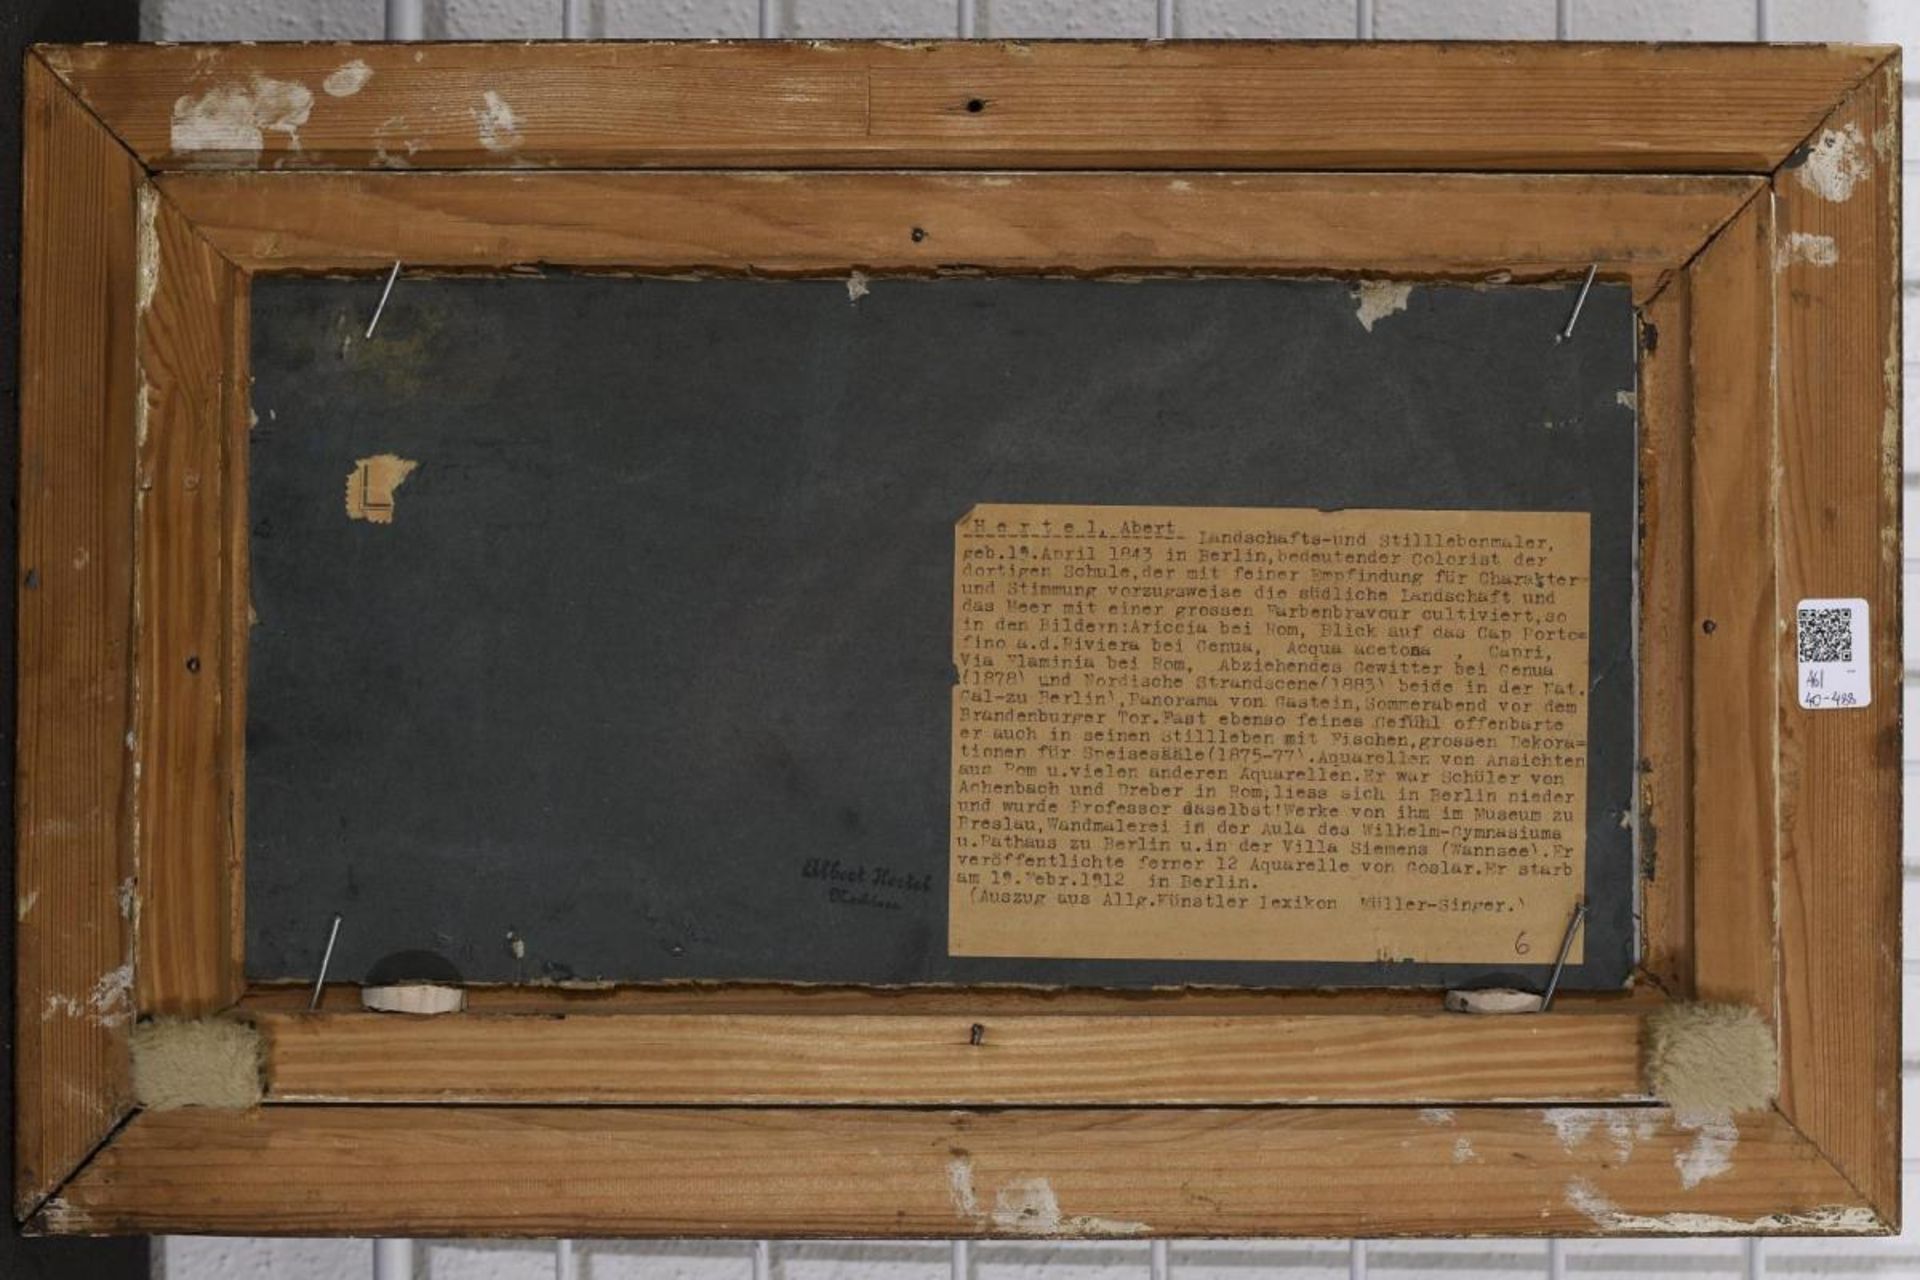 L
H e r t e l, Abert Landschafts-und Stilllebenmaler,
geb.19.April 1843 in Berlin,bedeutender Colorist der
dortigen Schule,der mit feiner Empfindung für Charakter-
und Stimmung vorzugsweise die südliche Landschaft und
das Meer mit einer grossen Farbenbravour cultiviert,so
in den Bildern:Ariccia bei Rom, Blick auf das Cap Porto=
fino a.d.Riviera bei Genua, Acqua acetosa , Capri,
Via Flaminia bei Rom, Abziehendes Gewitter bei Genua
(1878) und Nordische Strandscene(1883) beide in der Nat.
Gal-zu Berlin),Panorama von Gastein,Sommerabend vor dem
Brandenburger Tor.Fast ebenso feines Gefühl offenbarte
er auch in seinen Stillleben mit Fischen,grossen Dekora=
tionen für Speisesääle(1875-77).Aquarellen von Ansichten
aus Rom u.vielen anderen Aquarellen.Er war Schüler von
Achenbach und Dreber in Rom,liess sich in Berlin nieder
und wurde Professor daselbst!Werke von ihm im Museum zu
Breslau,Wandmalerei in der Aula des Wilhelm-Gymnasiums
u.Rathaus zu Berlin u.in der Villa Siemens (Wannsee).Er
veröffentlichte ferner 12 Aquarelle von Goslar.Er starb
am 19.Febr.1912 in Berlin.
(Auszug aus Allg.Künstler lexikon Müller-Singer.)
6
Albert Hertel
Nachlass
461
40-488